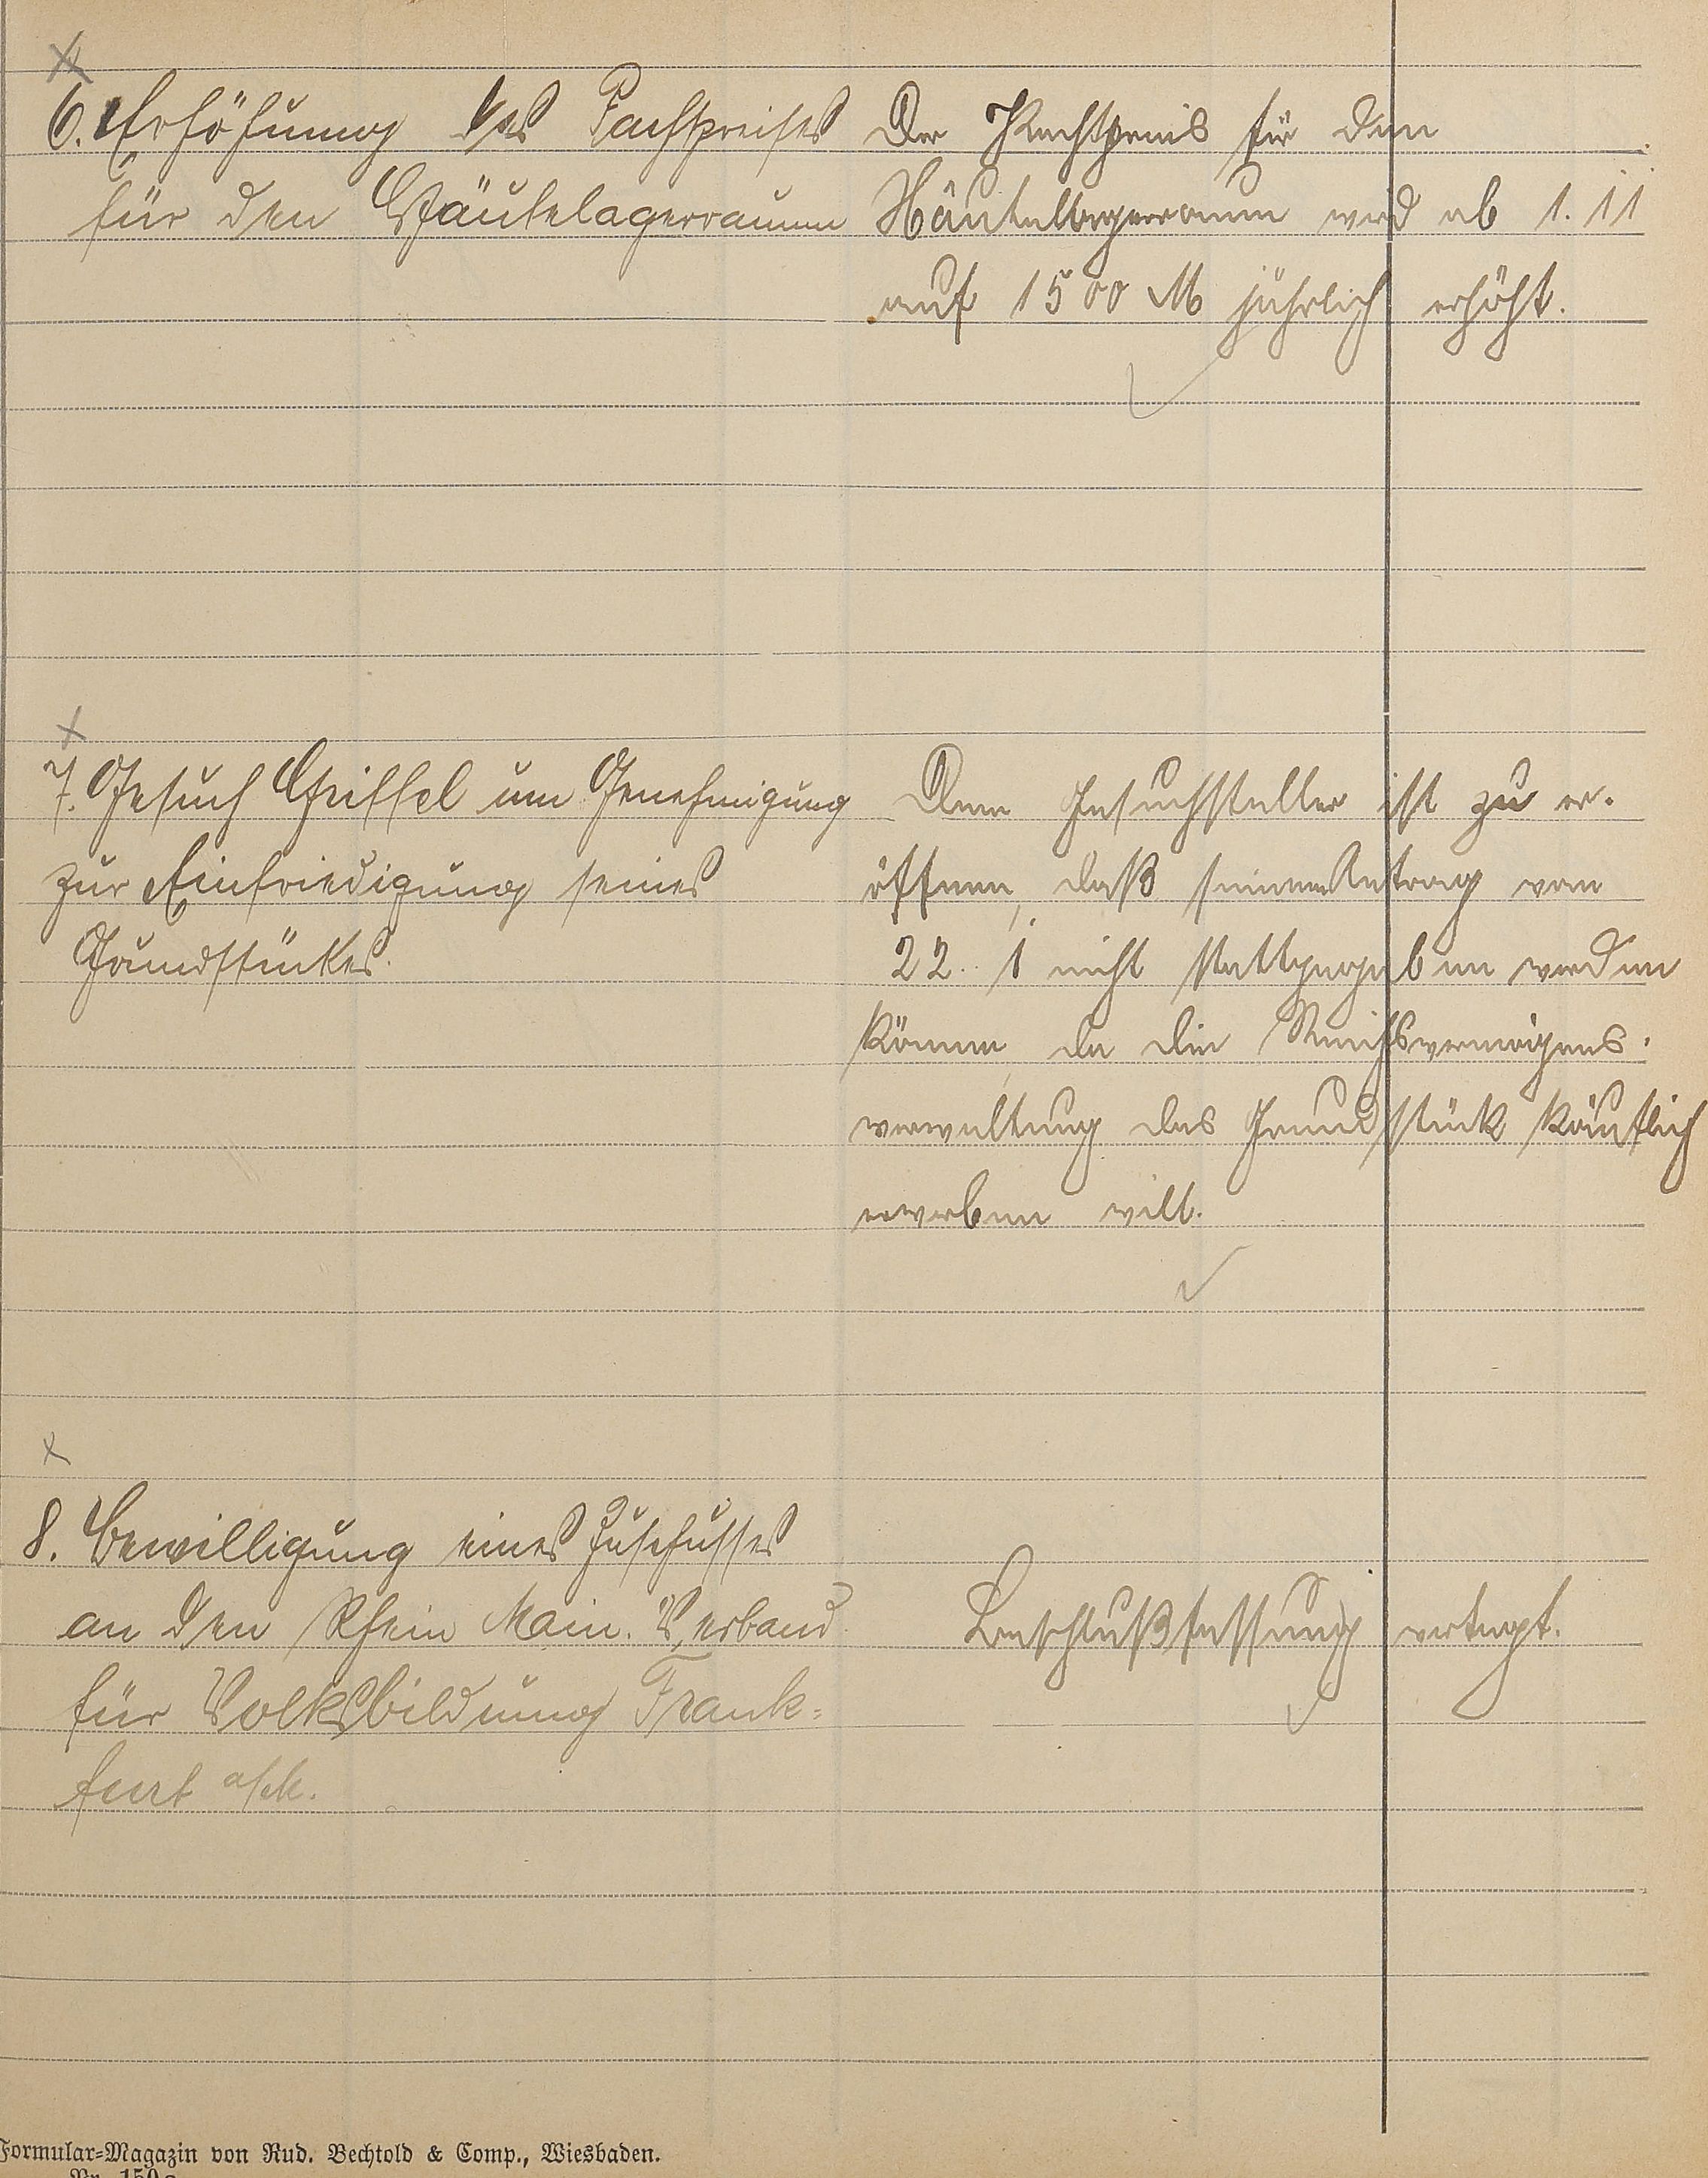 6. Erhöhung des Pachtpreises
für den Häutelagerraum
Der Pachtpreis für den
Häutelagerraum wird ab 1. 11
auf 1500 M jährlich erhöht.
7. Gesuch Griffel um Genehmigung
zur Einfriedigung seines
Grundstückes.
Dem Gesuchsteller ist zu er-
öffnen, daß seinem Antrag vom
22. 1 nicht stattgegeben werden
könne, da die Reichsvermögens-
verwaltung das Grundstück käuflich
erwerben will.
8. Bewilligung eines Zuschusses
an den Rhein Main. Verband
für Volksbildung Frank-
furt a/M.
Beschlußfassung vertagt.
Formular-Magazin von Rud. Bechtold & Comp., Wiesbaden.
Nr. 150a